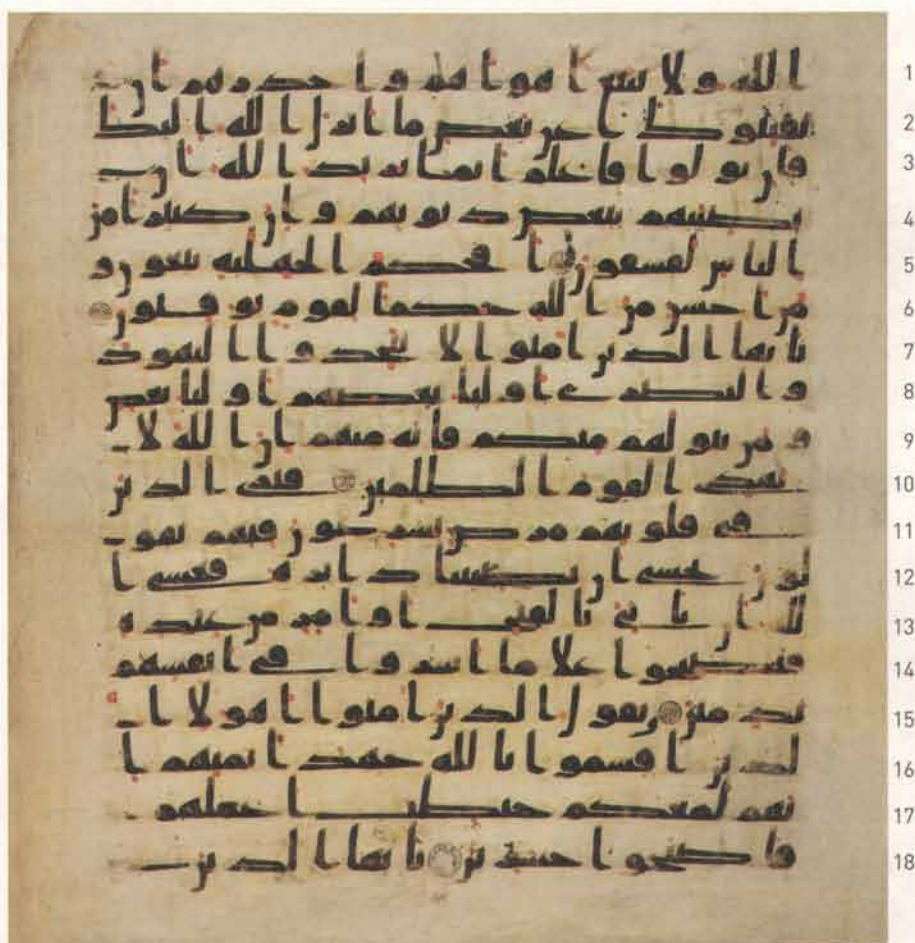 الله ولا تتبع اهواهم واحذرهم ان
يفتنوك عن بعض ما انزل الله اليك
فان تولوا فاعلم انما يريد الله ان
يصيبهم ببعض ذنوبهم وان كثيرا من
الناس لفسقون افحكم الجهليه يبغون و
من احسن من الله حكما لقوم يوقنون
يايها الذين امنوا لا تتخذوا اليهود
والنصرى اوليا بعضهم اوليا بعض
ومن يتولهم منكم فانه منهم ان الله لا
يهدى القوم الظلمين فترى الذين
فى قلوبهم مرض يسرعون فيهم يقو
لون نخشى ان تصيبنا دايره فعسى ا
لله ان ياتى بالفتح او امر من عنده
فيصبحوا علا ما اسروا فى انفسهم
ندمين يقول الذين امنوا اهولا ا
لذين اقسموا بالله جهد ايمنهم ا
نهم لمعكم حبطت اعملهم
فاصبحوا خسرين يايها الذين
1
2
3
4
5
6
7
8
9
10
11
12
13
14
15
16
17
18